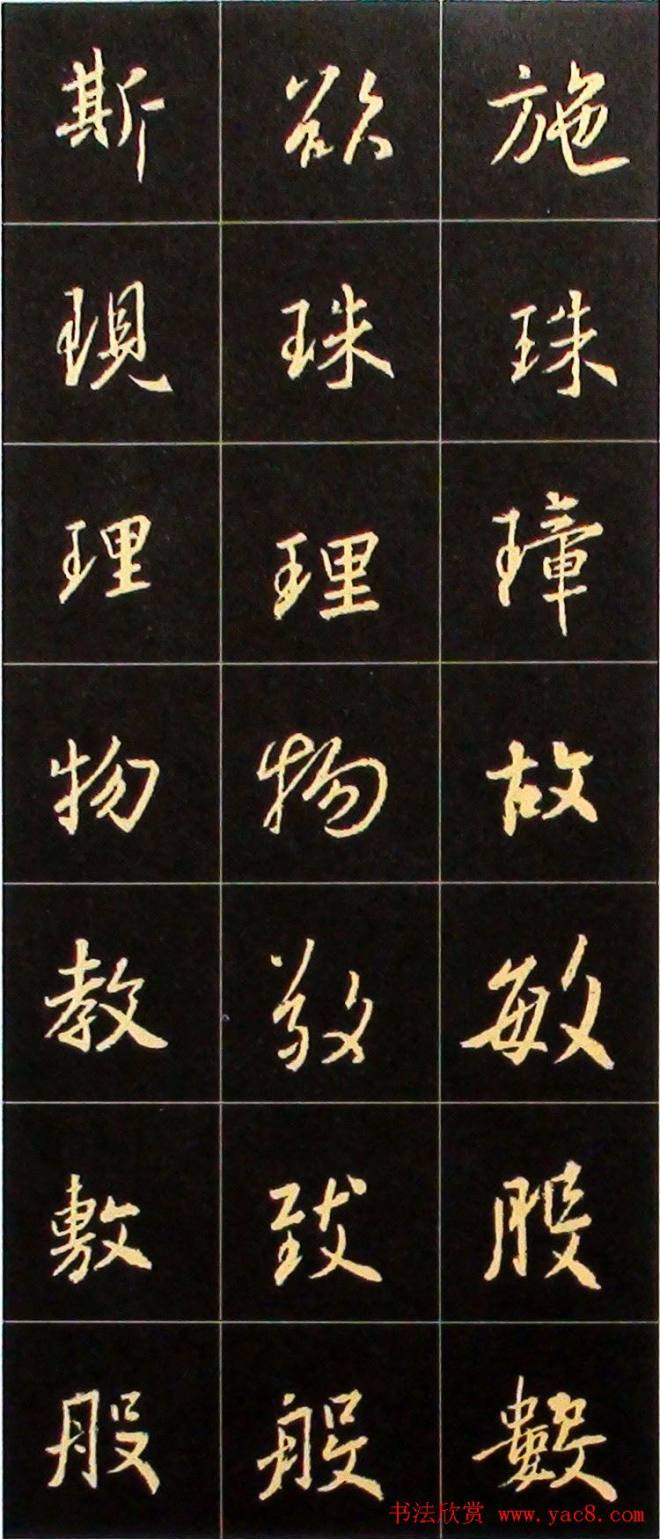 斯欲施
現珠珠
理理璋
物物故
教敬敏
敷致股
般般數
书法欣赏 www.yac8.com